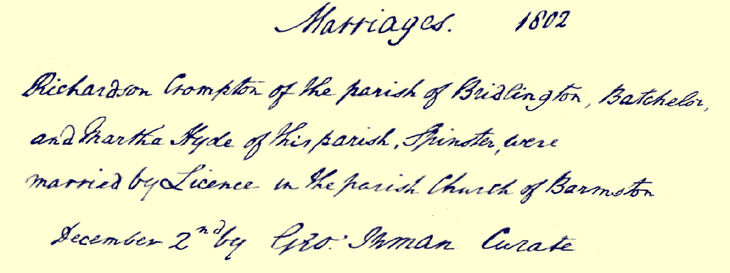 Marriages. 1802
Richardson Crompton of the parish of Bridlington, Batchelor,
and Martha Hyde of this parish, Spinster, were
married by Licence in the parish Church of Barmston
December 2nd by Geo: Inman Curate